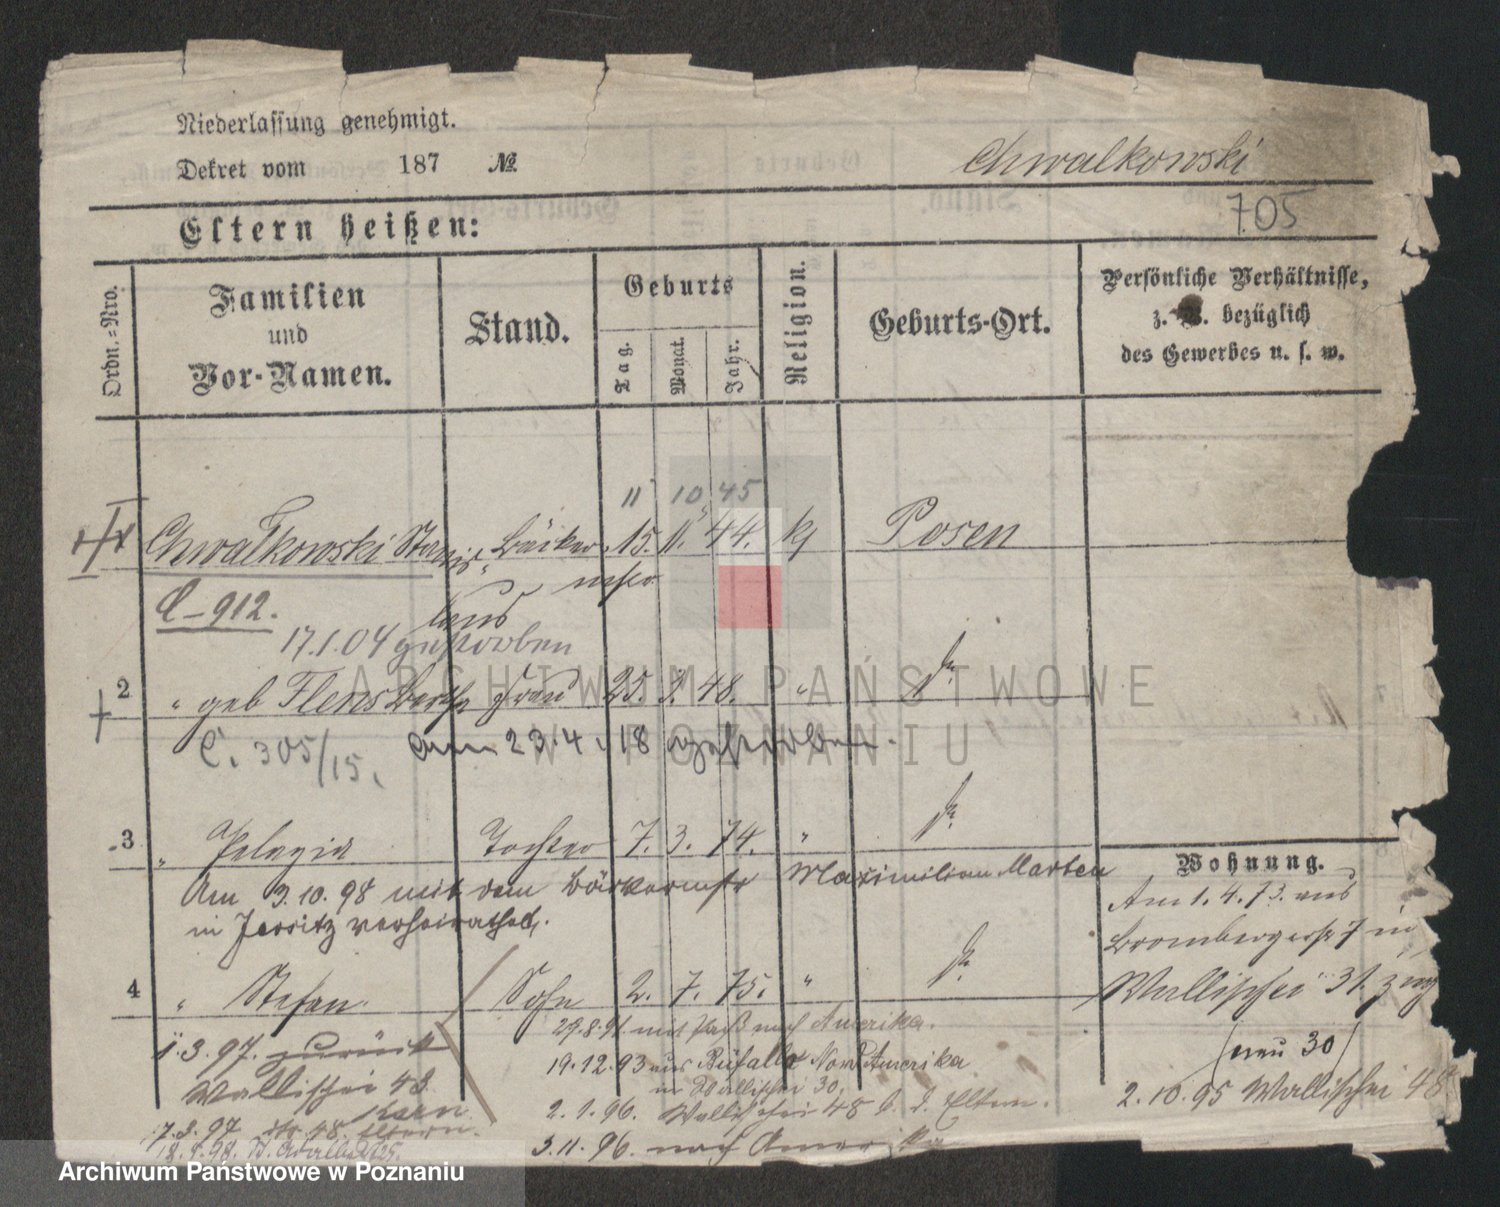 Niederlassung genehmigt.
Dekret vom 187 №
Chwalkowski
705
Eltern heißen:
Ordn.=Nro.
Familien
und
Vor-Namen.
Stand.
Geburts
Tag.
Monat.
Jahr.
Religion.
Geburts-Ort.
Persönliche Verhältnisse,
z. B. bezüglich
des Gewerbes u. s. w.
11 10 45
Chwalkowski Stanis- Bäcker 15. 11. 44. kj Posen
laus mstr
C-912.
17.1.04 gestorben
2 " geb Flens Bertha Frau 25. 3. 48. " do.
C. 305/15. am 23.4.18 gestorben.
3 " Pelagia Tochter 7. 3. 74. " do.
Am 3.10.98 mit dem Bäckermstr Maximilian Marten
in Jersitz verheirathet.
4 " Stefan. Sohn 2. 7. 75. " do.
29.8.91. mit Paß nach Amerika.
1.3.97. zurück
19.12.93 aus Büfallo Nord Amerika
Wallischei 48
in Wallischei 30.
2.1.96. Wallischei 48 b. d. Eltern.
7.3.97 48 Eltern.
3.11.96. nach Amerika
Wohnung.
Am 1.4.73. aus
Brombergerstr 7 in
Wallischei 31. zug
/neu 30/
2.10.95 Wallischei 48
ARCHIWUM PAŃSTWOWE
W POZNANIU
Archiwum Państwowe w Poznaniu